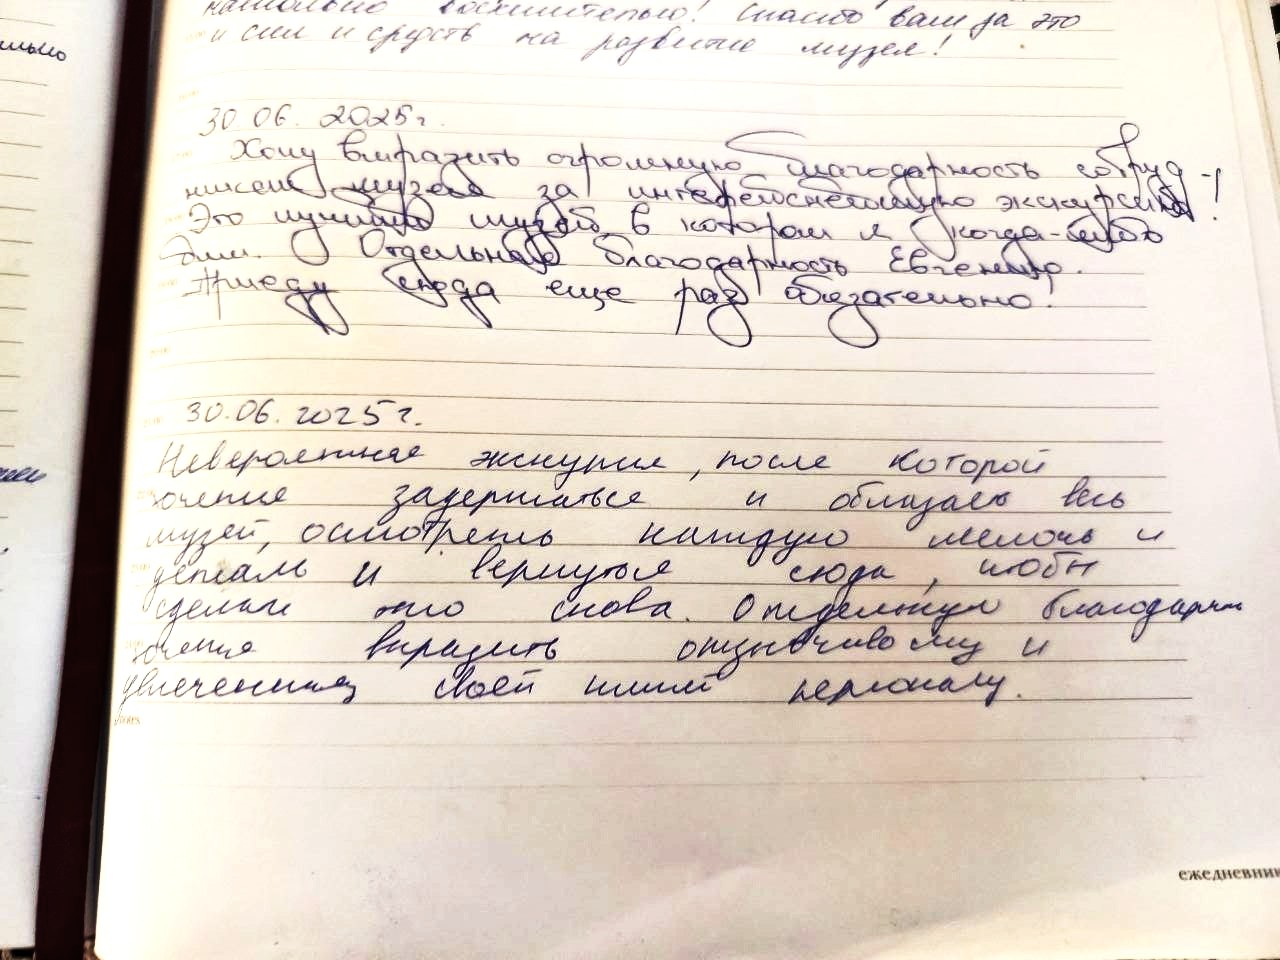 восхитительно! Спасибо вам за это
и сил и средств на развитие музея!
30.06.2025г.
Хочу выразить огромную благодарность сотруд-
никам музея за интереснейшую экскурсию!
Это лучший музей, в котором я когда-либо
был. Отдельная благодарность Евгению.
Приеду сюда еще раз обязательно!
30.06.2025г.
Невероятная экскурсия, после которой
хочется задержаться и облазить весь
музей, осмотреть каждую мелочь и
деталь и вернуться сюда, чтобы
сделать это снова. Отдельную благодарн
хочется выразить отзывчивому и
увлеченному своей персоналу.
ежедневник